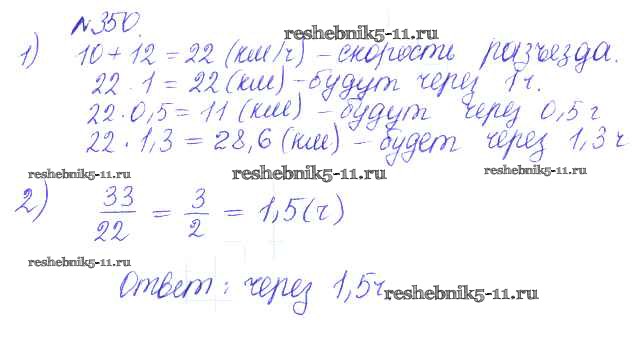 №350.
reshebnik5-11.ru
1) 10+12=22 (км/ч) - скорость разъезда.
22·1=22(км) - будут через 1ч.
22·0,5=11(км) - будут через 0,5 г
22·1,3=28,6(км) - будет через 1,3 ч
reshebnik5-11.ru reshebnik5-11.ru reshebnik5-11.ru
2) 33/22 = 3/2 = 1,5(ч)
reshebnik5-11.ru
Ответ: через 1,5ч
reshebnik5-11.ru